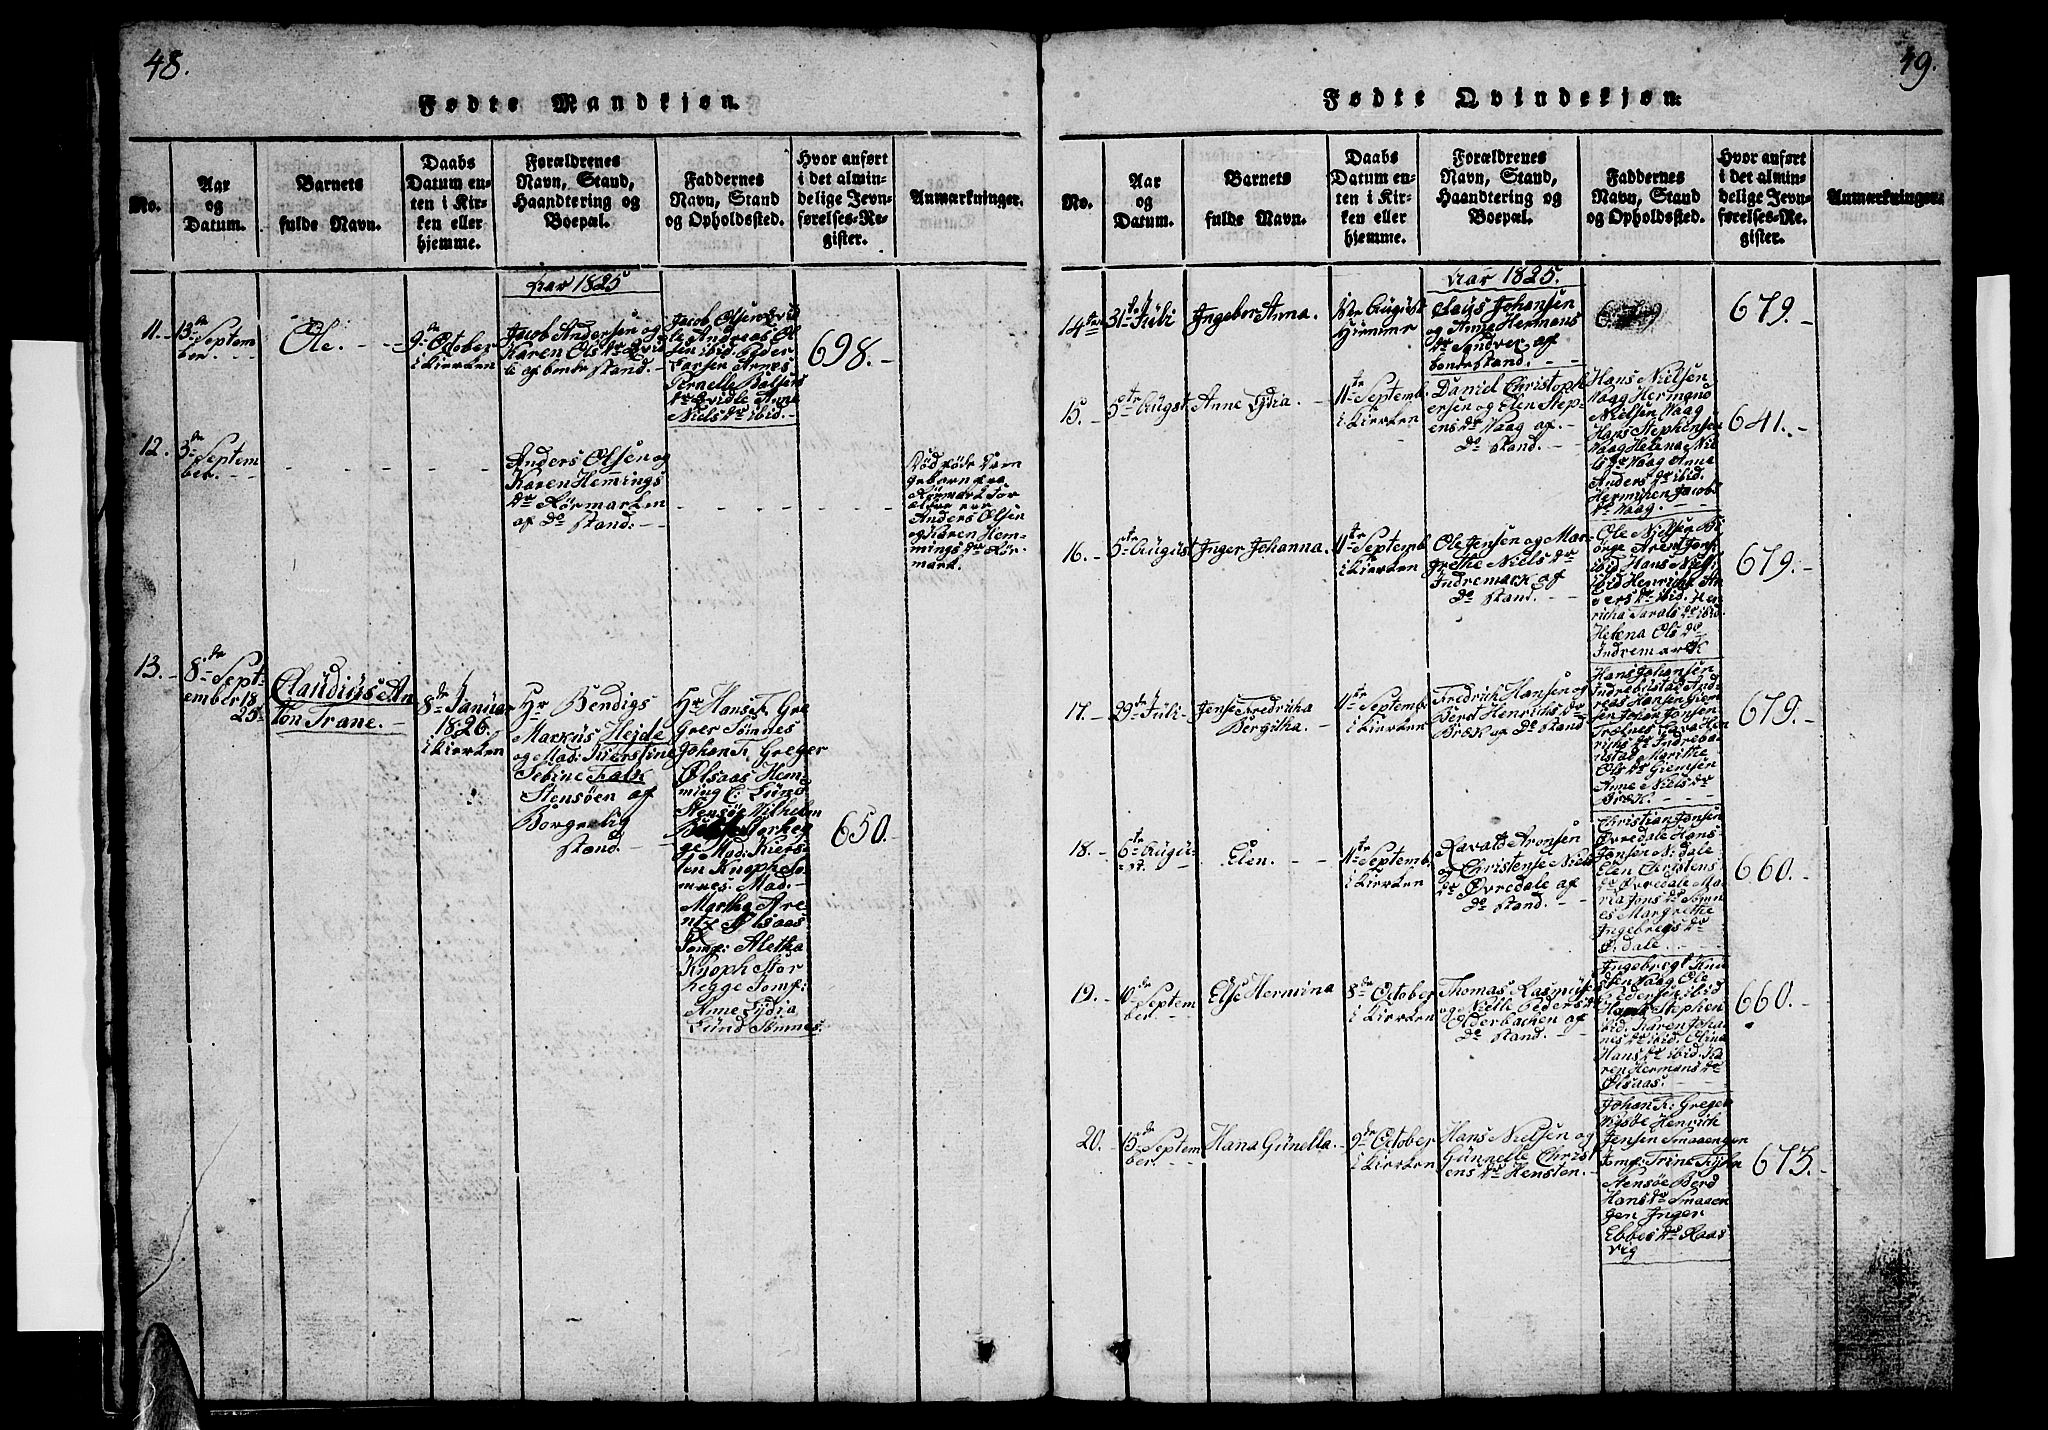 48.
Fødte Mandkjøn.
No.
Aar
og
Datum.
Barnets
fulde Navn.
Daabs
Datum en-
ten i Kir-
ken eller
hjemme.
Forældrenes
Navn, Stand,
Haandtering og
Boepæl.
Faddernes
Navn, Stand
og Opholdssted.
Hvor anført
i det almin-
delige Jevn-
førelses-Re-
gister.
Anmærkninger.
Aar 1825
11.
13de Septem
ber.
Ole.
9de October
i Kierken
Jacob Andersen og
Karen Ols dr
af bonde stand.
Jacob Olsen
Andreas Ol
sen ibid: Peder
Larsen
Pernelle
Anne
Niels dr ibid.
698.
12.
3de Septem
ber.
Anders Olsen og
Karen Hemings
dr Rørmarken
af do stand.
Død fødte
Anders Olsen
og Karen Hem
mings dr Rør
mark.
13.
8de Sept
ember 18
25
Claudius An
ton Trane.
8de Januar
1826.
i Kierken
Hr Bendigs
Markus Hejde
og Mad: Kierstine
Sebine Falk
Stensøen af
Borgerlig
stand.
Hr Hans F. Gre
ger Sømnes
Johan F. Greger
Olsaas Hem
ming C: Lund
Stensøe Vilhelm
Storheg
ge Mad: Kiers
ten Knoph Sø
mnes. Mad.
Martha Are
ntz Olsaas
Jomf: Aletha
Knoph Stor
hegge Jomf:
Anne Lydia
Lund Sømnes.
650.
49.
Fødte Qvindekjøn.
No.
Aar
og
Datum.
Barnets
fulde Navn.
Daabs
Datum en-
ten i Kir-
ken eller
hjemme.
Forældrenes
Navn, Stand,
Haandtering og
Boepæl.
Faddernes
Navn, Stand
og Opholdssted.
Hvor anført
i det almin-
delige Jevn-
førelses-Re-
gister.
Anmærkninger.
Aar 1825.
14
31te Juli
Ingebor Anna.
August
Hiemme
Claus Johansen
og Anne Hermans
dr Sandver af
bondestand.
679.
15.
5te Augst
Anne Lydia.
11te Septemb
i Kierken
Daniel Christoph
ersen og Elen Step
ens dr Vaag af
do stand.
Hans Nielsen
Vaag Hermand
Nielsen Vaag
Hans Stephensen
Vaag Helena Nie
ls dr Vaag Anne
Anders dr ibid.
Jacobs
dr Vaag.
641.
16.
5te August
Inger Johanna.
11te Septemb
i Kierken
Ole Jensen og Mar
grethe Niels dr
Indremark af
do stand.
Ole Nielsen
Arent Jens
ibid Hans Niels
ibid Henrich An
ders dr ibid. Hen
richa Tarals dr ibid
Helena Ols dr
Indremark
679.
17.
29de Juli
Jense Fredricha
Bergitha.
11te Septemb
i Kierken
Fredrich Hansen og
Beret Henrichs dr
Bræk af do stand
Hans Johansen
Indrebustad And
reas Hansen Giem
sen Johan Jonsen
Hen
richs dr Indrebu
stad Marithe
Ols dr Giemsen
Anne Niels dr
Bræk.
679.
18.
6te Augu
st.
Elen.
11te Septemb
i Kierken
Ravald Aronsen
og Christense Niels
dr Øvredale af
do stand.
Christian Jonsen
Øvredale Hans
Jonsen N. dale
Elen Christens
dr Øvredale Ma
ria Jons dr Sømn
es Margrethe
Ingebregs dr
dale.
660.
19.
10de Septem
ber
Else Hermina
8de October
i Kierken
Thomas Rasmus
og Nielle Peders dr
Olderbachen af
do stand.
Ingebregt Knu
dsen Vaag Ole
Pedersen ibid
Hans Stephen
ibid. Karen Joha
nes dr ibid. Olina
Hans dr ibid. Ka
ren Hermans dr
Olsaas.
660.
20.
15de Septem
ber.
Hana Gunella.
9de October
i Kierken
Hans Nielsen og
Gunnelle Christ
ens dr Hensten.
Johan F: Greger
Vigsøe Henrich
Jensen Smaaengen
Jomf: Trine
Stensøe Berd
Hans dr Smaaen
gen Inger
Ebbes dr Raas
vig
673.